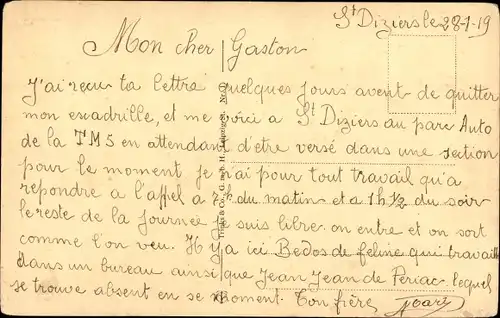 St Diziers le 28-1-19
Mon cher Gaston
J'ai recu ta lettre quelques jours avent de quitter
mon escadrille, et me voici a St Diziers au parc Auto
de la TM5 en attendant d'etre versé dans une section
pour le moment je n'ai pour tout travail qu'a
repondre a l'appel a 7h du matin et a 1h½ du soir
le reste de la journée je suis libre on entre et on sort
comme l'on veu. Il y a ici Bedos de feline qui travaille
dans un bureau ainsi que Jean Jean de Periac lequel
se trouve absent en se moment. Ton frère